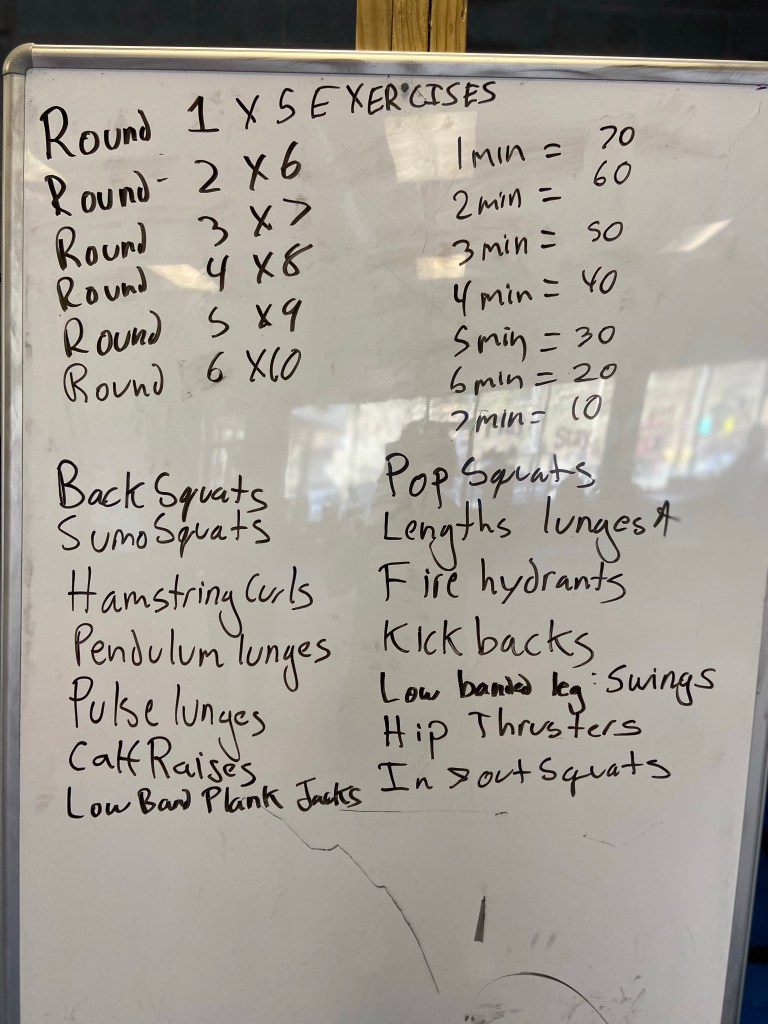 Round 1 X 5 EXERCISES
Round 2 X 6
Round 3 X 7
Round 4 X 8
Round 5 X 9
Round 6 X 10
1 min = 70
2 min = 60
3 min = 50
4 min = 40
5 min = 30
6 min = 20
7 min = 10
Back Squats
Sumo Squats
Hamstring Curls
Pendulum lunges
Pulse lunges
Calf Raises
Low Band Plank Jacks
Pop Squats
Lengths lunges
Fire hydrants
Kick backs
Low banded leg Swings
Hip Thrusters
In & out Squats